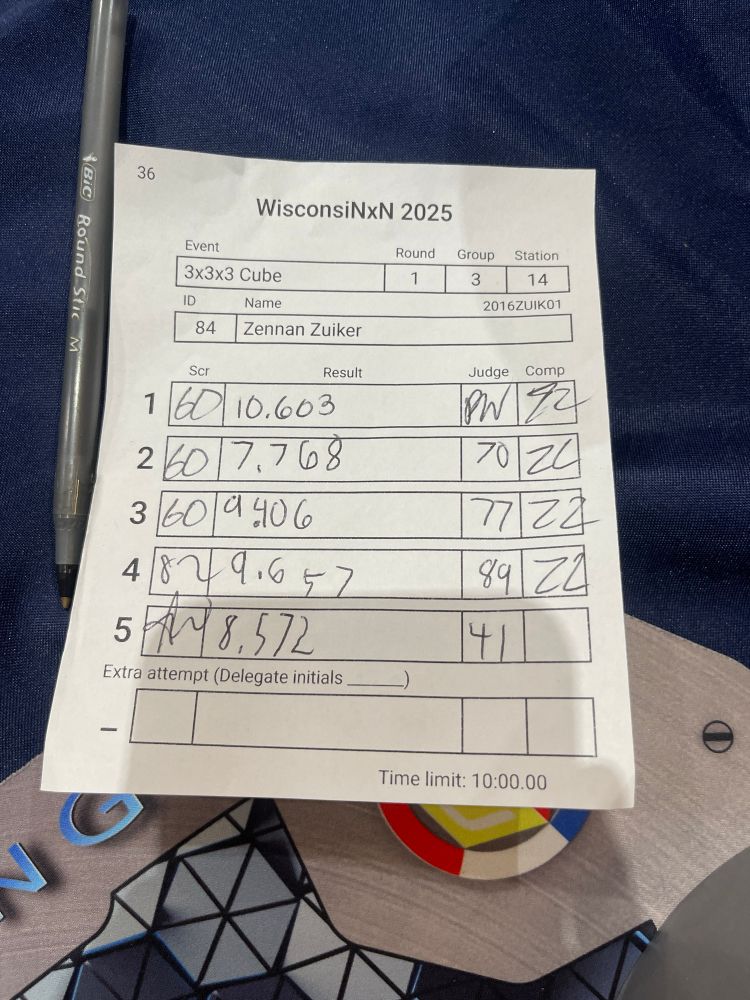 BIC Round Stic M
36
WisconsiNxN 2025
Event Round Group Station
3x3x3 Cube 1 3 14
ID Name 2016ZUIK01
84 Zennan Zuiker
Scr Result Judge Comp
1 60 10.603 PW
2 60 7.768 70
3 60 9.406 77 ZZ
4 82 9.657 89 ZZ
5 8.572 41
Extra attempt (Delegate initials ______)
–
Time limit: 10:00.00
NG